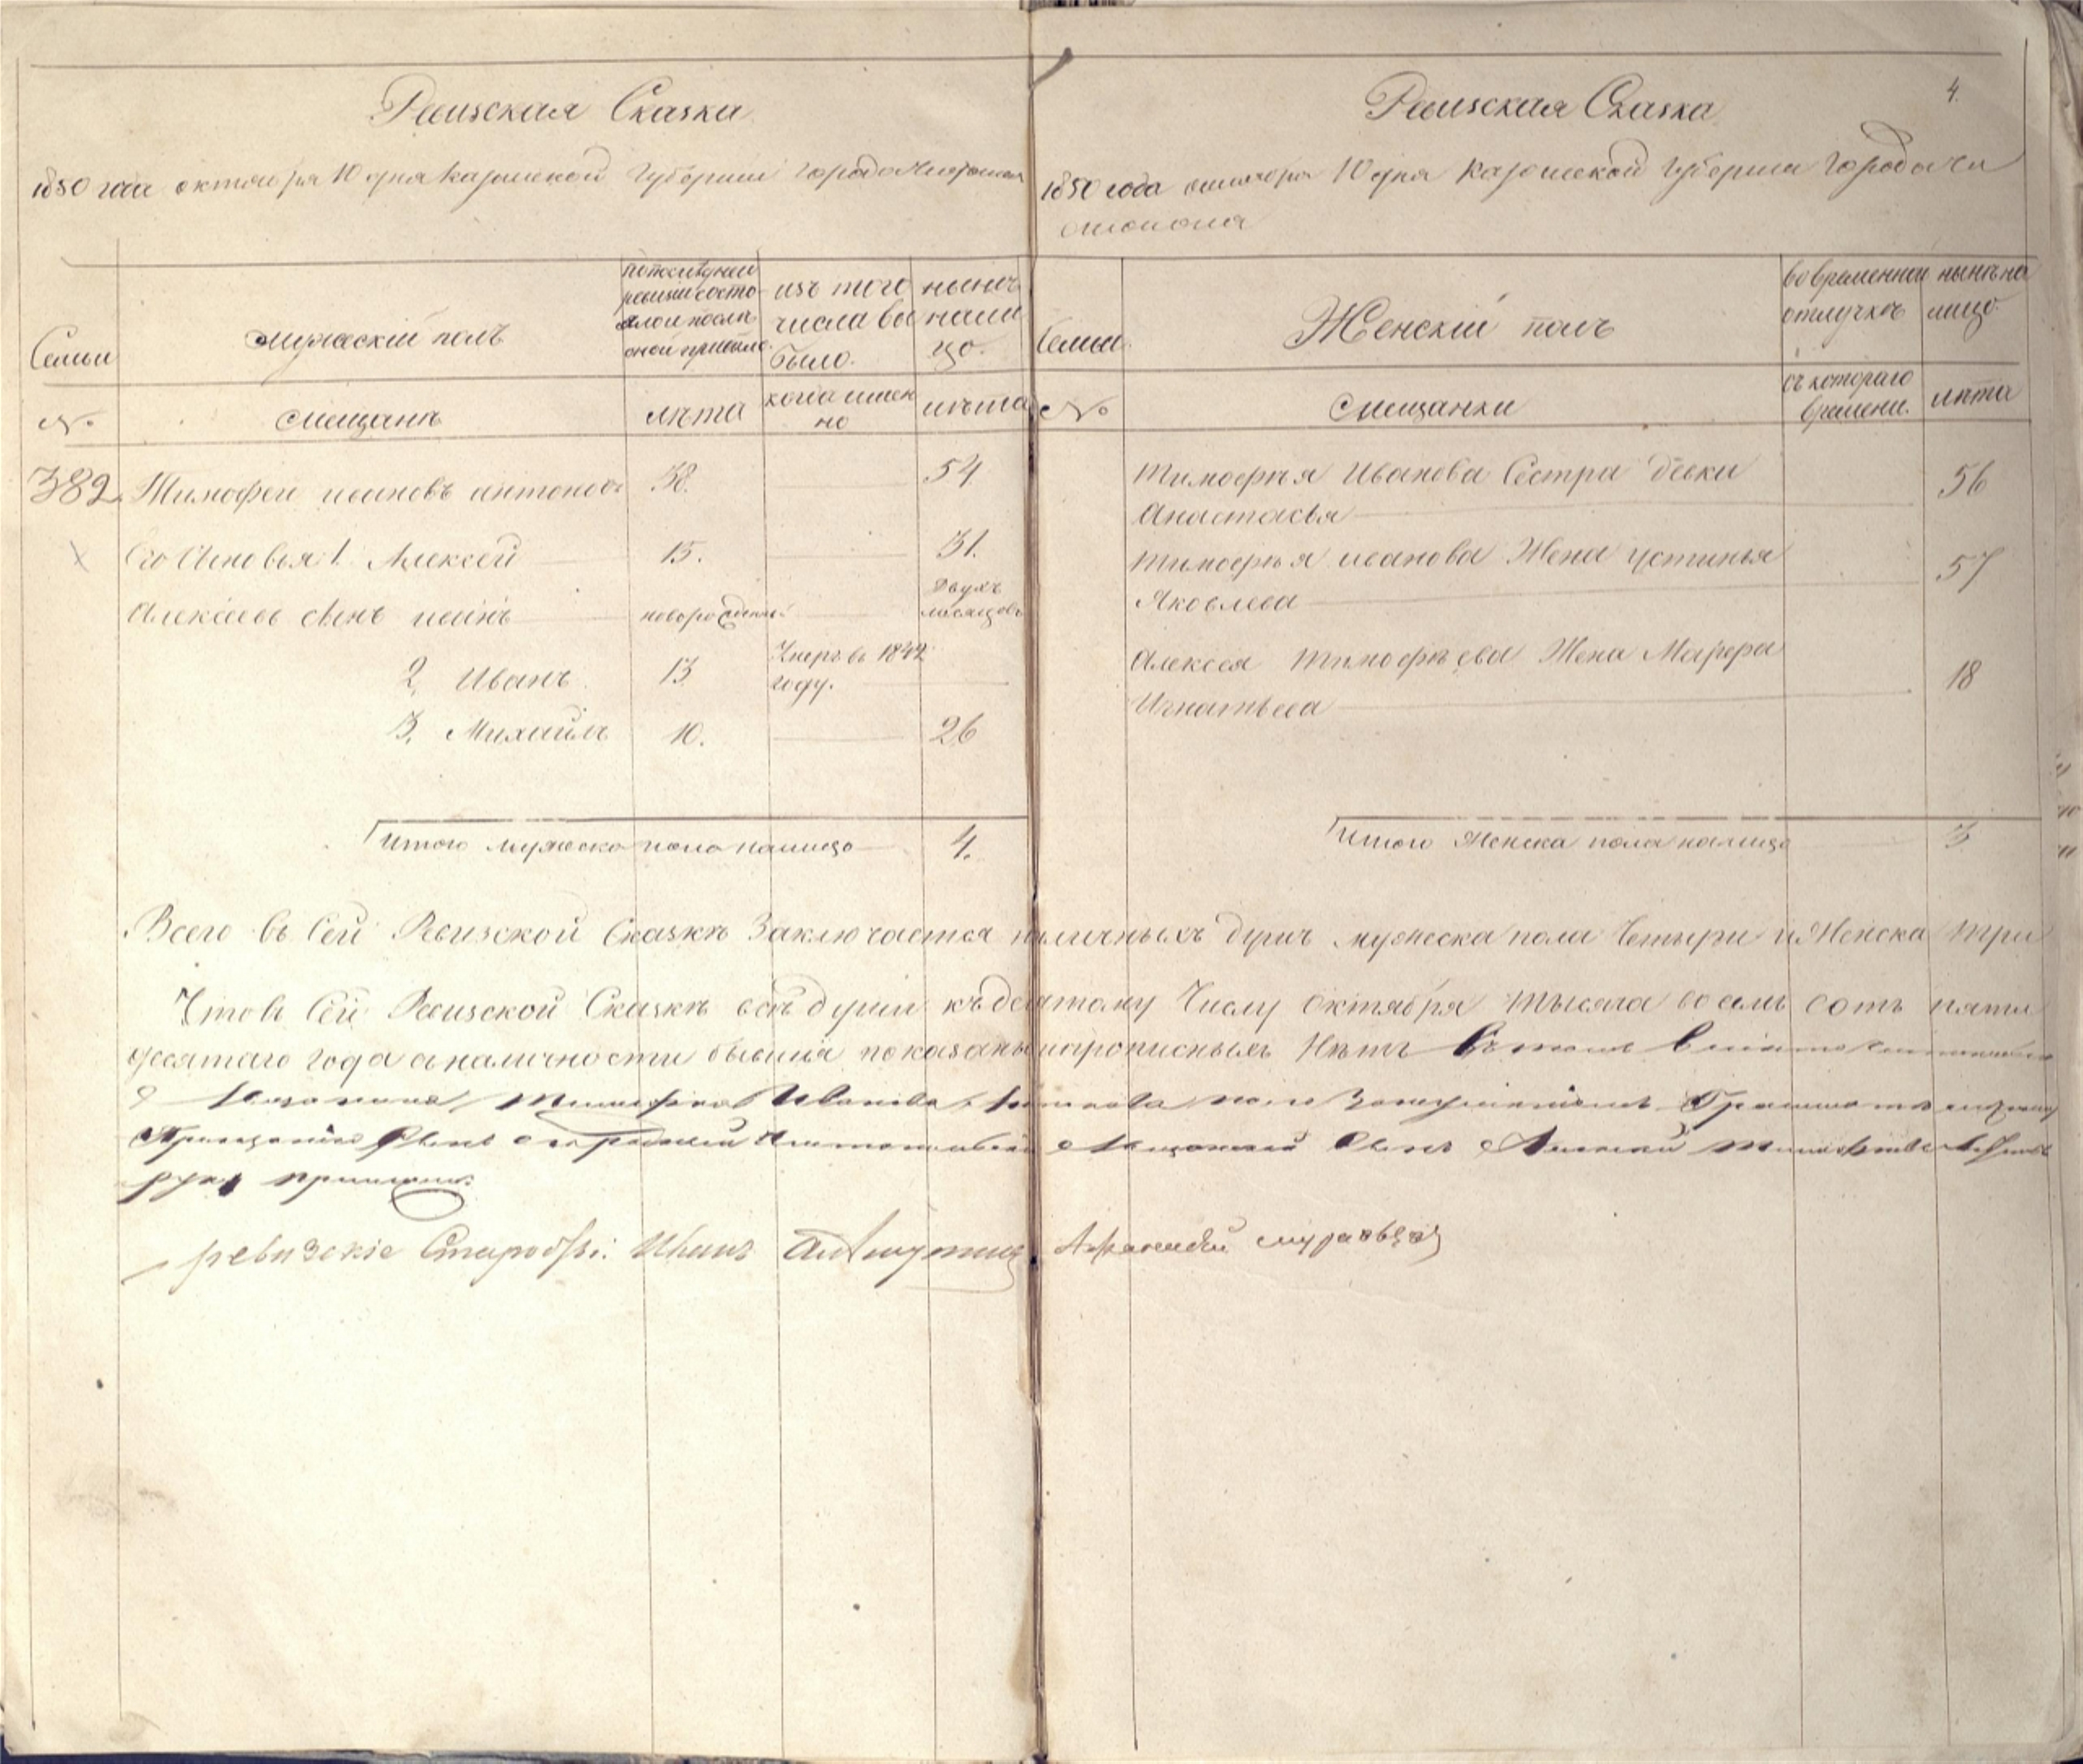 Ревизская Сказка
1850 года октября 10 дня казанской губернии города Чистополя
Семьи
мужескій полъ
по последней
ревизіи состо-
яло и посли
оной прибыло.
изъ того
числа вы
было.
нынѣ
нали
цо.
№
мещанъ
лѣта
когда имен
но
лѣта
382. Тимофей ивановъ антоновъ 38. 54
Его Сыновья 1. Алексей 15. 31.
Алексеевъ сынъ иванъ новорожденный двухъ
месяцовъ
2. Иванъ 13 Умеръ въ 1842
году.
3. Михайлъ 10. 26
Итого мужеска пола налицо 4.
4.
Ревизская Сказка
1850 года октября 10 дня казанской губерніи города чи
стополя
Семьи.
Женскій полъ
во временной
отлучкѣ
нынѣ на
лицо
№
мещанки
съ котораго
времени.
лѣта
Тимофѣя Иванова Сестра девка
Анастасья 56
Тимофѣя иванова Жена устинья
Яковлева 57
Алексея Тимофѣева Жена Марфа
Игнатьева 18
Итого Женска пола налицо 3
Всего въ Сей Ревизской Сказкѣ Заключается наличныхъ душъ мужеска пола Четыри и Женска три
Что въ Сей Ревизской Сказкѣ всѣ души къ десятому Числу Октября тысяча восемь сотъ пяти
десятаго года в наличности бывшія показаны и прописныхъ Нѣтъ Въ томъ
Тимофея Иванова Антонова
Сынъ Алексей
руку приложилъ
ревизскіе Иванъ